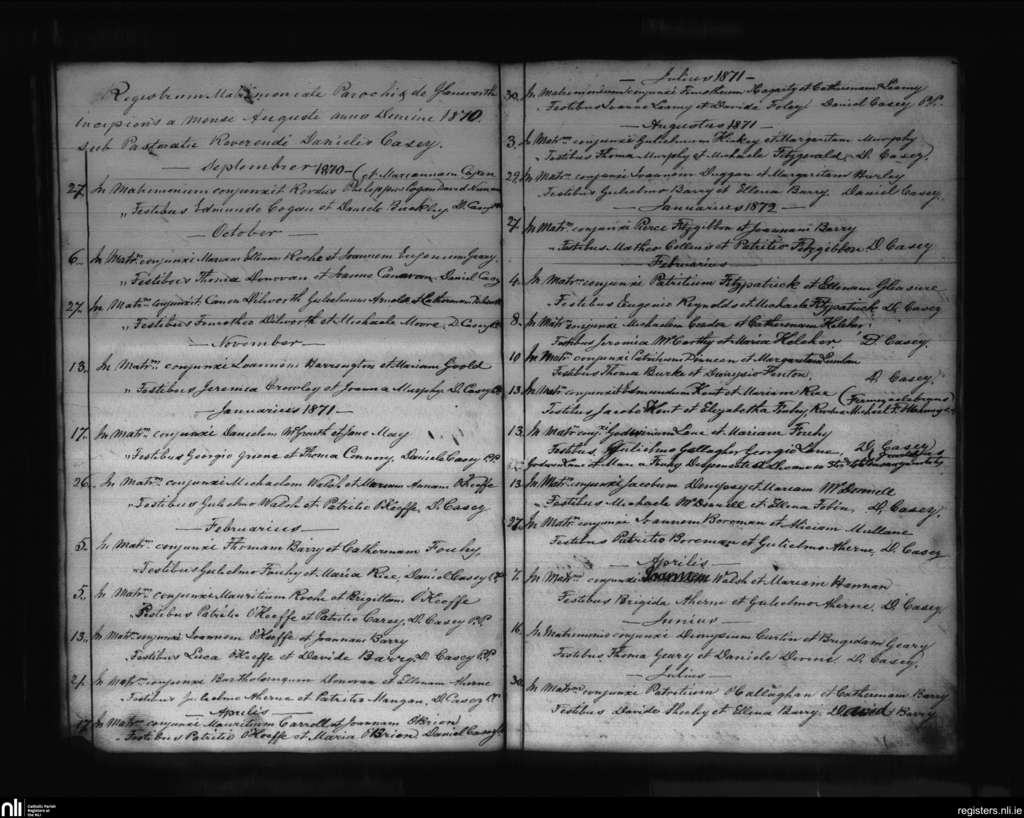 Registrum Matrimoniale Parochiæ de Glanworth
incipiens a mense Augusti anno Domini 1870.
sub Pastoratu Reverendi Danielis Casey.
— Septembrer 1870 — (et Mariannam Cogan
27. In Matrimonium conjunxit Philippus Cogan David
„ Testibus Edmundo Cogan et Daniele Buckley. D. Casey
— October —
6. In Matrm. conjunxi Roche et Joannem Geary.
„ Testibus Thoma Donovan et Daniel Casey
27. In Matrm. conjunxit Canon Dilworth Gulielmum Arnold et
„ Testibus Timotheo Dilworth et Michaele Moore. D. Casey
— November —
13. In Matrm. conjunxi Joannem Harrington et Mariam Goold
„ Testibus Jeremia Crowley et Joanna Murphy. D. Casey
— Januarius 1871 —
17. In Matrm. conjunxi Danielem McGrath et Jane May
„ Testibus Georgio Greene et Thoma Connery. Daniele Casey P.P.
26. In Matrm. conjunxi Michaelem Walsh et Mariam Annam O'Keeffe
„ Testibus Gulielmo Walsh et Patritio O'Keeffe. D. Casey
— Februarius —
5. In Matrm. conjunxi Thomam Barry et Catherinam Fouhy
„ Testibus Gulielmo Fouhy et Maria Rice, Daniel Casey P.P.
5. In Matrm. conjunxi Mauritium Roche et Brigittam O'Keeffe
Testibus Patritio O'Keeffe et Patritio Carey. D. Casey P.P.
13. In Matrm. conjunxi Joannem O'Keeffe et Joannam Barry
Testibus Luca O'Keeffe et Davide Barry, D. Casey P.P.
21. In Matrm. conjunxi Bartholomeum Donovan et Ellenam Aherne
Testibus Gulielmo Aherne et Patritio Mangan, D. Casey P.P.
— Aprilis —
17. In Matrm. conjunxi Mauritium Carroll et Joannam O'Brien
Testibus Patritio O'Keeffe et Maria O'Brien Daniel Casey
— Julius 1871 —
30. In Matrimonium conjunxi Timotheum Hegarty et Catherinam Leamy
Testibus Leamy et Davide Foley Daniel Casey P.P.
— Augustus 1871 —
3. In Matrm. conjunxi Gulielmum Hickey et Margaritam Murphy
„ Testibus Thoma Murphy et Michaele Fitzgerald, D. Casey.
22. In Matrm. conjunxi Joannem Duggan et Margaritam Burley
Testibus Gulielmo Barry et Ellena Barry. Daniel Casey.
— Januarius 1872 —
27. In Matrm. conjunxi Pierce Fitzgibbon et Joannam Barry
„ Testibus Matheo Collins et Patritio Fitzgibbon D. Casey
— Februarius —
4. In Matrm. conjunxi Patritium Fitzpatrick et Ellenam Gleasure
Testibus Eugenio Reynolds et Michaele Fitzpatrick D. Casey
8. In Matrm. conjunxi Michaelem et Catherinam Kelcher
Testibus Jeremia McCarthy et Maria Kelcher D. Casey.
10 In Matrm. conjunxi Patritium Dineen et Margaritam
Testibus Thoma Burke et Dionysio Fenton. D. Casey.
13. In Matrm. conjunxit Edmundum Hunt et Mariam Rice
Testibus Jacobo Hunt et Elizabetha Fouhy
13. In Matrm. conjxi Godwinium Lane et Mariam Fouhy
Testibus, Gulielmo Gallagher Georgio Lane, D. Casey
13. In Matrm. conjunxi Jacobum Dempsey et Mariam McDonnell
„ Testibus Michaele McDonnell et Ellena Tobin. D. Casey.
27. In Matrm. conjunxi Joannem Boreman et Aliciam Mullane
Testibus Patritio Boreman et Gulielmo Aherne, D. Casey
— Aprilis —
7. In Matrm. conjunxi Joannem Walsh et Mariam Hannan
Testibus Brigida Aherne et Gulielmo Aherne. D. Casey
— Junius —
16. In Matrimonio conjunxi Dionysium Curtin et Brigidam Geary
Testibus Thoma Geary et Daniele D. Casey.
— Julius —
30. In Matrm. conjunxi Patritium O'Callaghan et Catherinam Barry
Testibus Davide Sheehy et Ellena Barry. David Barry
nli Catholic Parish Registers at the NLI
registers.nli.ie